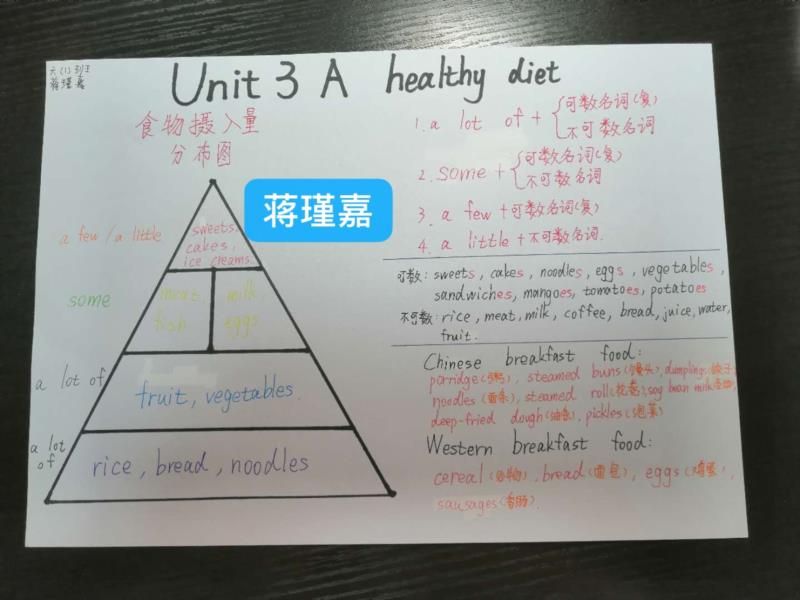 六(1)班
蒋瑾嘉
Unit 3 A healthy diet
食物摄入量
分布图
蒋瑾嘉
a few / a little
sweets,
cakes,
ice creams.
some
meat,
fish
milk,
eggs
a lot of
fruit, vegetables.
a lot
of
rice, bread, noodles
1. a lot of + 可数名词(复)
不可数名词
2. some + 可数名词(复)
不可数名词
3. a few + 可数名词(复)
4. a little + 不可数名词.
可数: sweets, cakes, noodles, eggs, vegetables,
sandwiches, mangoes, tomatoes, potatoes
不可数: rice, meat, milk, coffee, bread, juice, water,
fruit.
Chinese breakfast food:
porridge(粥), steamed buns(馒头), dumplings(饺子)
noodles(面条), steamed roll(花卷), soy bean milk
deep-fried dough(油条), pickles(泡菜)
Western breakfast food:
cereal(谷物), bread(面包), eggs(鸡蛋),
sausages(香肠).